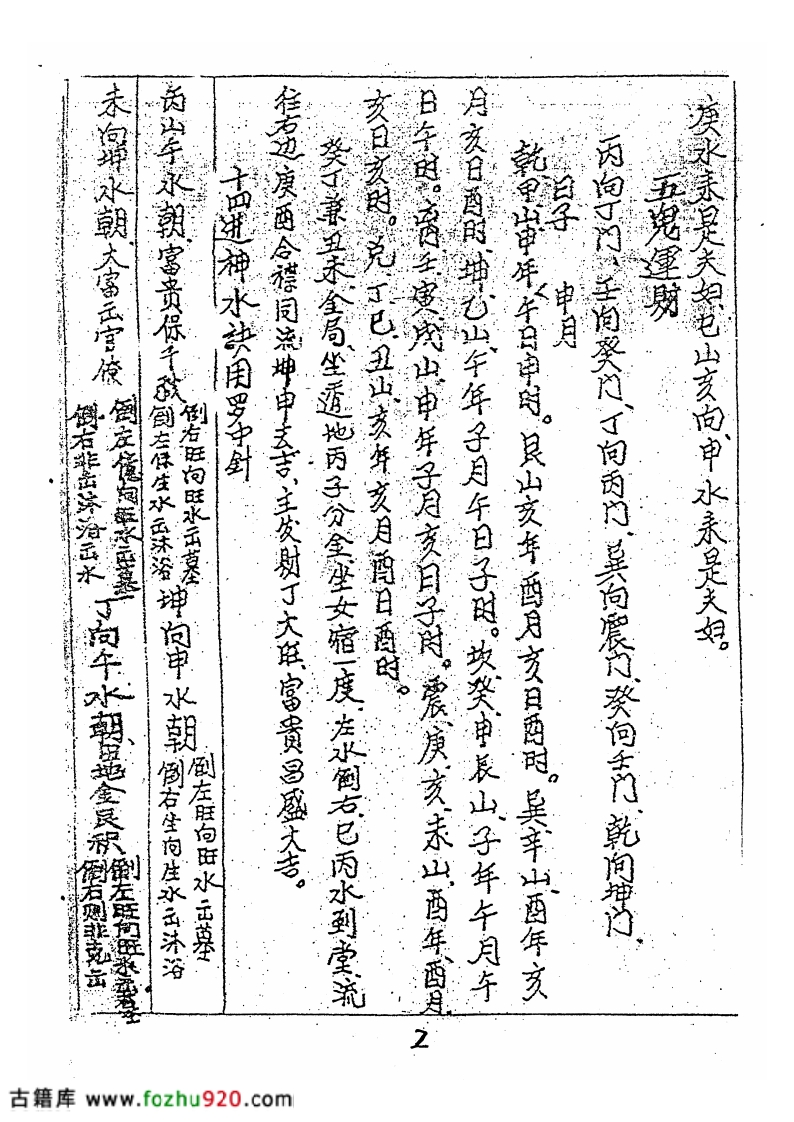 庚水来是夫妇、巳山亥向、申水来是夫妇。
五鬼运财
丙向丁门、壬向癸门、丁向丙门、巽向震门、癸向壬门、乾向坤门、
日子 申月
乾甲山、申年午日申时。艮山亥年酉月亥日酉时。巽辛山、酉年亥
月亥日酉时、坤乙山、午年子月午日子时。坎癸、申辰山、子年午月午
日午时。离壬、寅、戌山、申年子月亥日子时。震、庚、亥、未山、酉年、酉月
亥日亥时。兑丁巳、丑山、亥年亥月酉日酉时。
癸丁兼丑未、全局、坐遁地丙子分金、坐女宿一度、左水倒右、巳丙水到堂、流
往右边庚酉合襟同流坤申去吉、主发财丁大旺、富贵昌盛大吉。
十四进神水诀用罗中針
丙山午水朝、富贵保千秋
倒右旺向旺水出墓
倒左保生水出沐浴
坤向申水朝
倒左旺向旺水出墓
倒右生向生水出沐浴
未向坤水朝、大富出官僚
倒左 向旺水出墓
倒右非出沐浴出水
丁向午水朝、 地金艮积
倒左旺向旺水出墓
倒右则非克出
2
古籍库 www.fozhu920.com